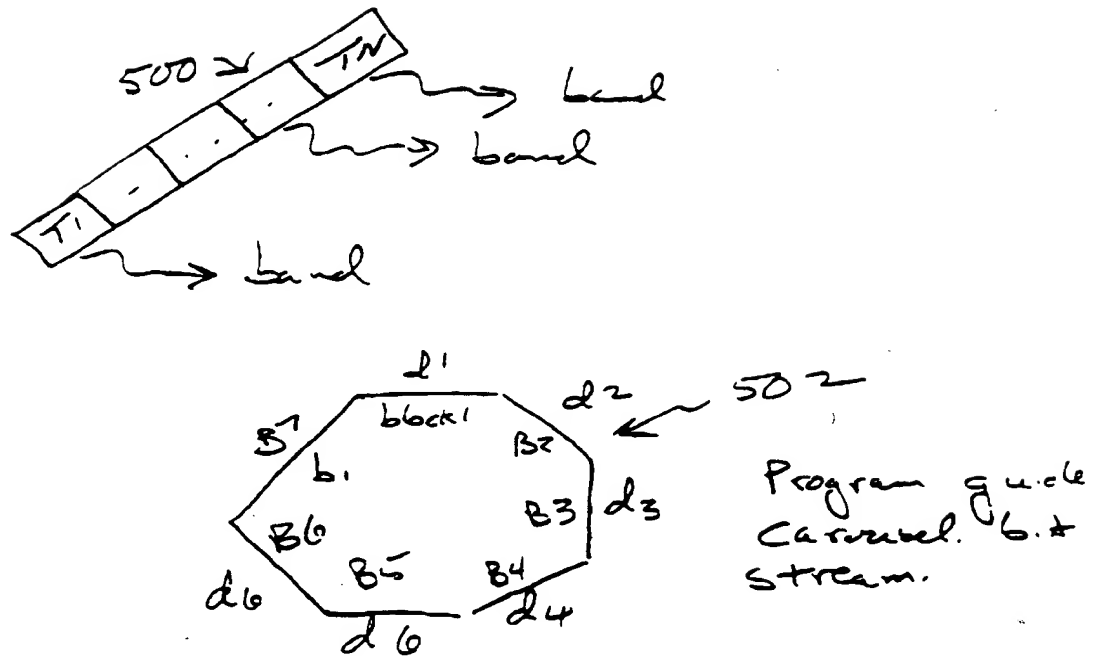 500
TN
band
band
T1
band
d1
block1
d2
502
B7
b1
B2
B3
d3
B6
B5
B4
d6
d6
d4
Program guide
Carousel. bit
stream.